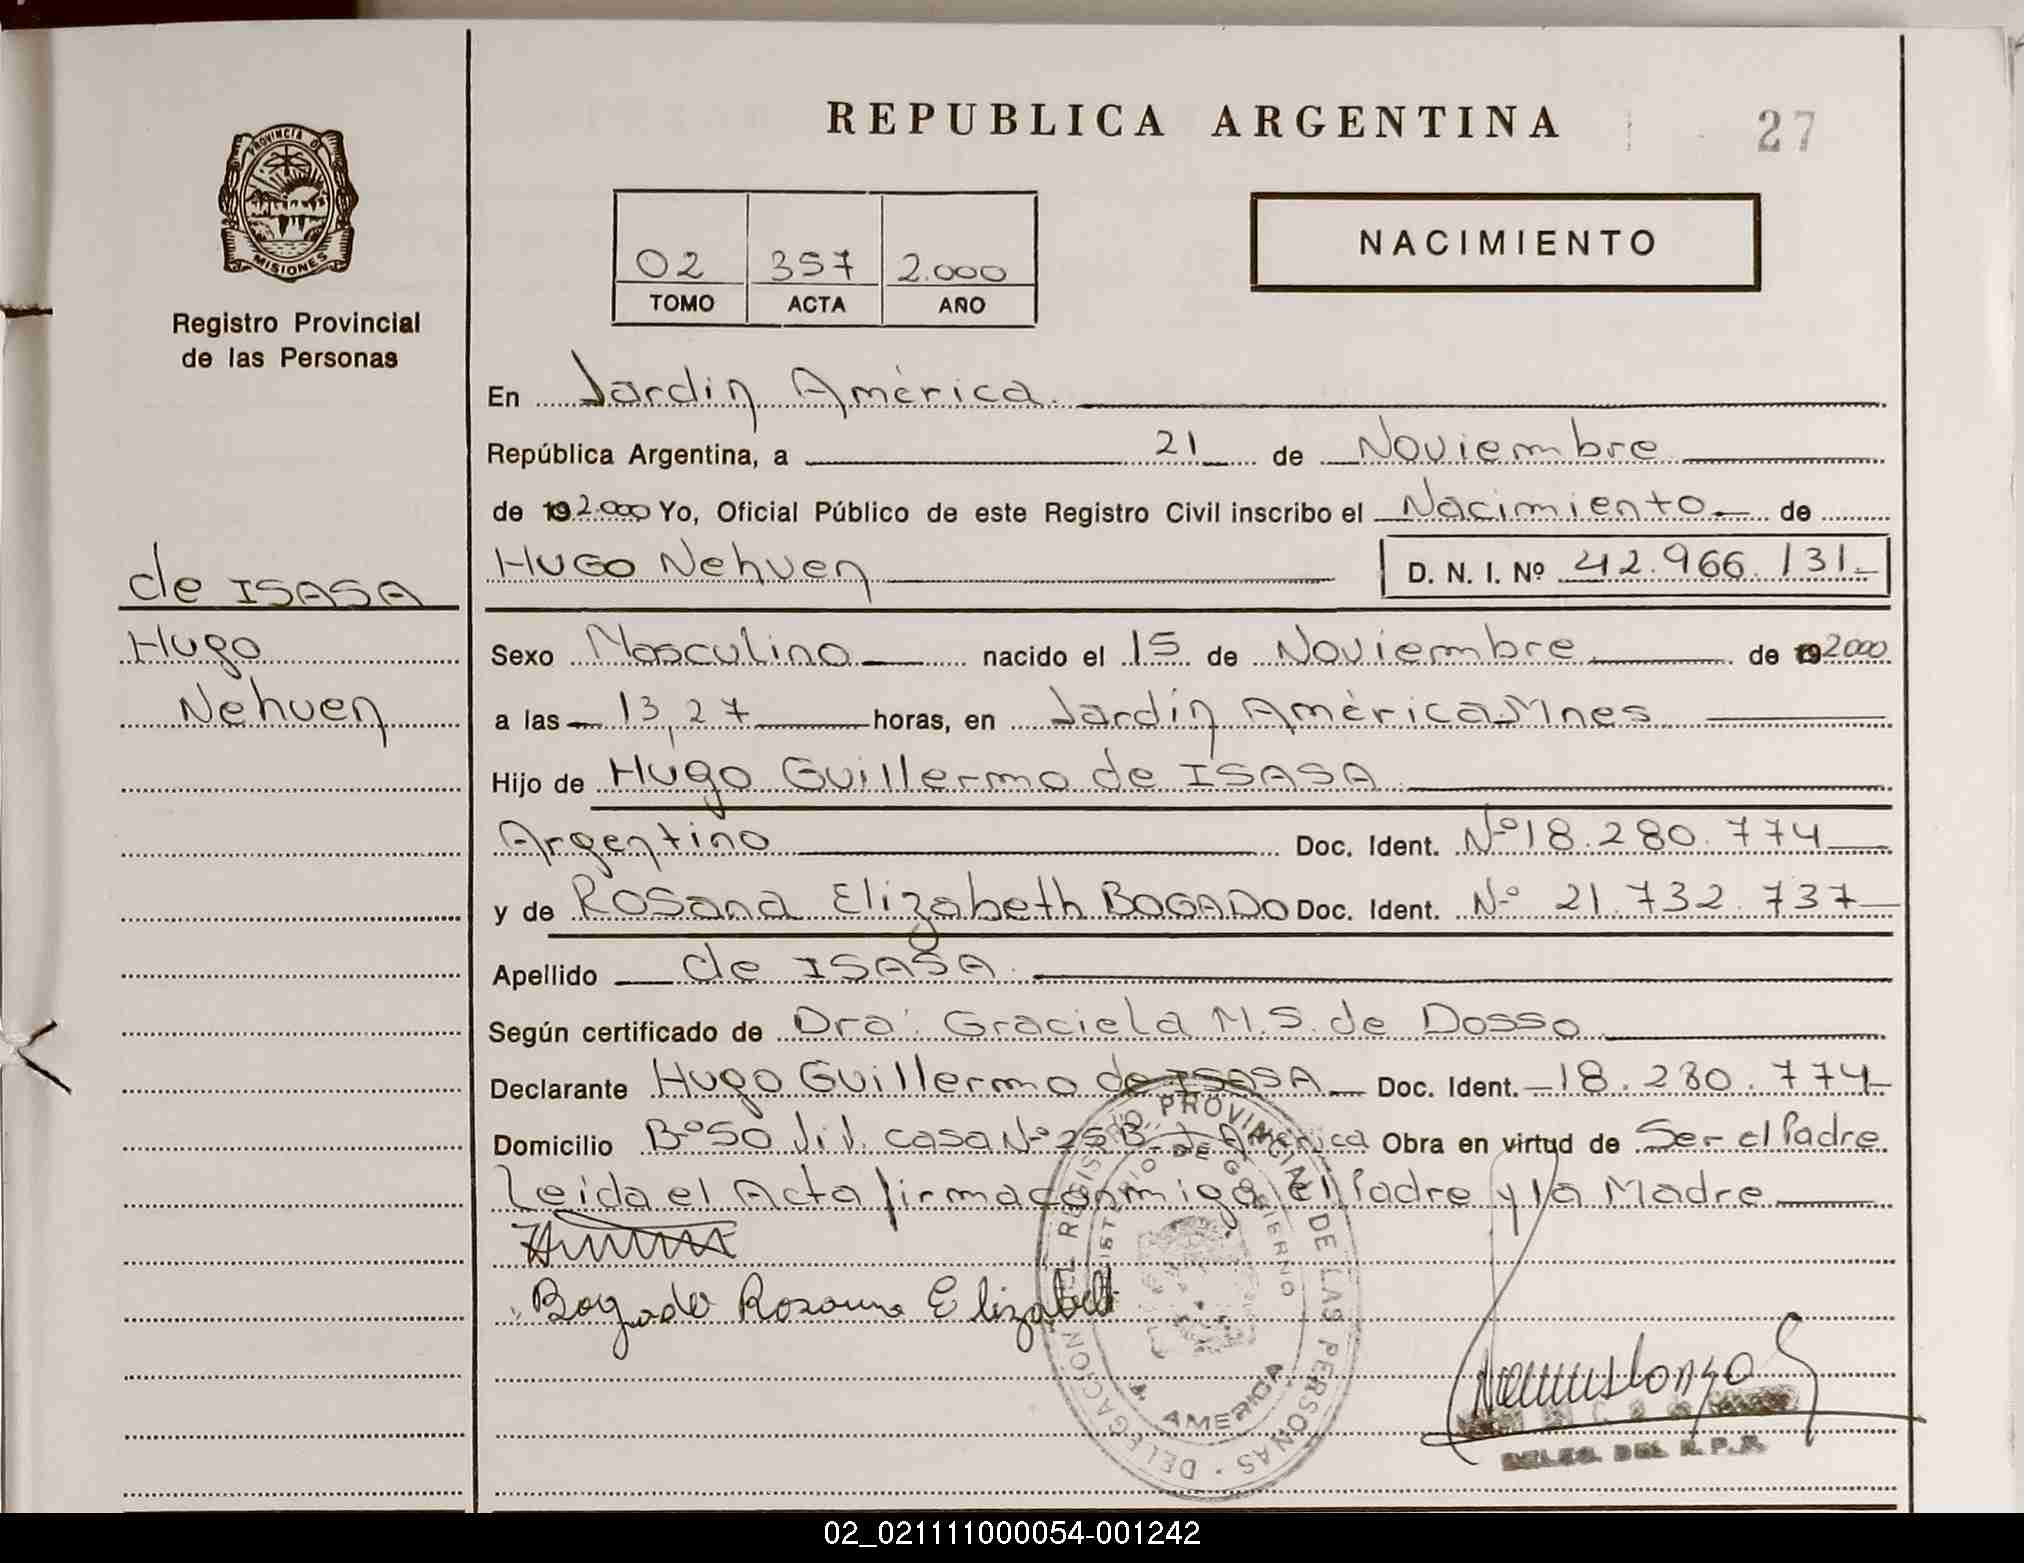 REPUBLICA ARGENTINA
27
PROVINCIA DE
MISIONES
Registro Provincial
de las Personas
02 357 2.000
TOMO ACTA AÑO
NACIMIENTO
En Jardin América
República Argentina, a 21 de Noviembre
de 192.000 Yo, Oficial Público de este Registro Civil inscribo el Nacimiento de
HUGO Nehuen D. N. I. Nº 42.966.131
de ISASA
Hugo
Nehuen
Sexo Masculino nacido el 15 de Noviembre de 192000
a las 13,27 horas, en Jardín América Mnes
Hijo de Hugo Guillermo de ISASA
Argentino Doc. Ident. Nº 18.280.774
y de ROSana Elizabeth BOGADO Doc. Ident. Nº 21.732.737
Apellido de ISASA
Según certificado de Dra. Graciela M.S. de Dosso
Declarante Hugo Guillermo de ISASA Doc. Ident. 18.280.774
Domicilio Bº 50 Viv. casa Nº 25 B América Obra en virtud de Ser el Padre
Leida el Acta firma conmigo el Padre y la Madre
Bogado Rosana Elizabeth
DELEGACION DEL REGISTRO PROVINCIAL DE LAS PERSONAS
MINISTERIO DE GOBIERNO
J. AMERICA
DELEG. DEL R. P. P.
02_021111000054-001242